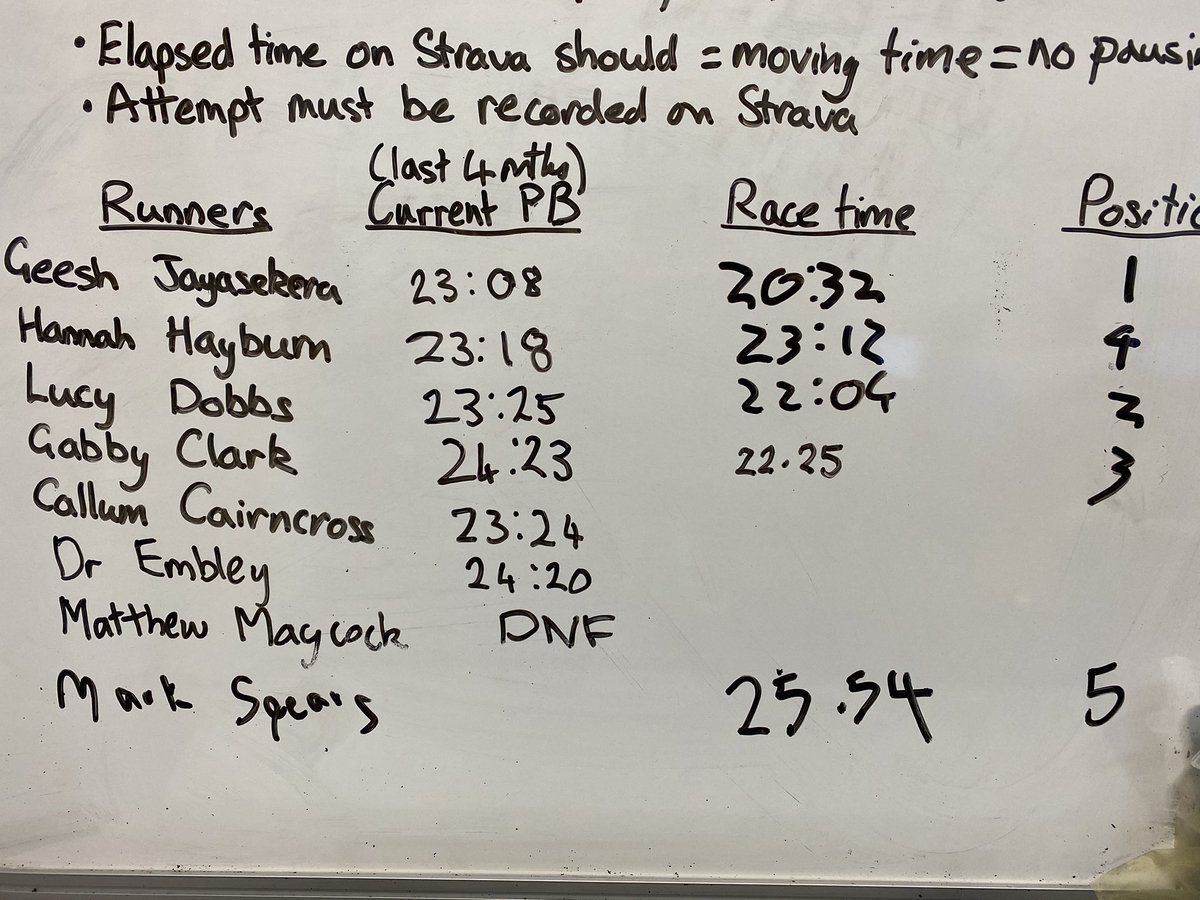 • Elapsed time on Strava should = moving time = no pausi
• Attempt must be recorded on Strava
(last 4 mths)
Runners Current PB Race time Positio
Geesh Jayasekera 23:08 20:32 1
Hannah Hayburn 23:18 23:12 4
Lucy Dobbs 23:25 22:04 2
Gabby Clark 24:23 22.25 3
Callum Cairncross 23:24
Dr Embley 24:20
Matthew Maycock DNF
Mark Spears 25.54 5